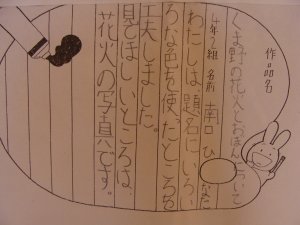 作品名
くま野の花火とおぼんについて
4年2組 名前 南口 ひ
わたしは、題名にいろい
ろな色を使ったところを
工夫しました。
見てほしいところは、
花火の写真です。